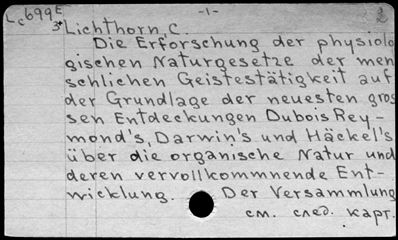 Lc699E -1- 2
3+ Lichthorn, C.
Die Erforschung der physiolo
gischen Naturgesetze der men
schlichen Geistestätigkeit auf
der Grundlage der neuesten gros
sen Entdeckungen Dubois Rey-
mond's, Darwin's und Häckel's
über die organische Natur und
deren vervollkommnende Ent-
wicklung. Der Versammlung
см. след. карт.